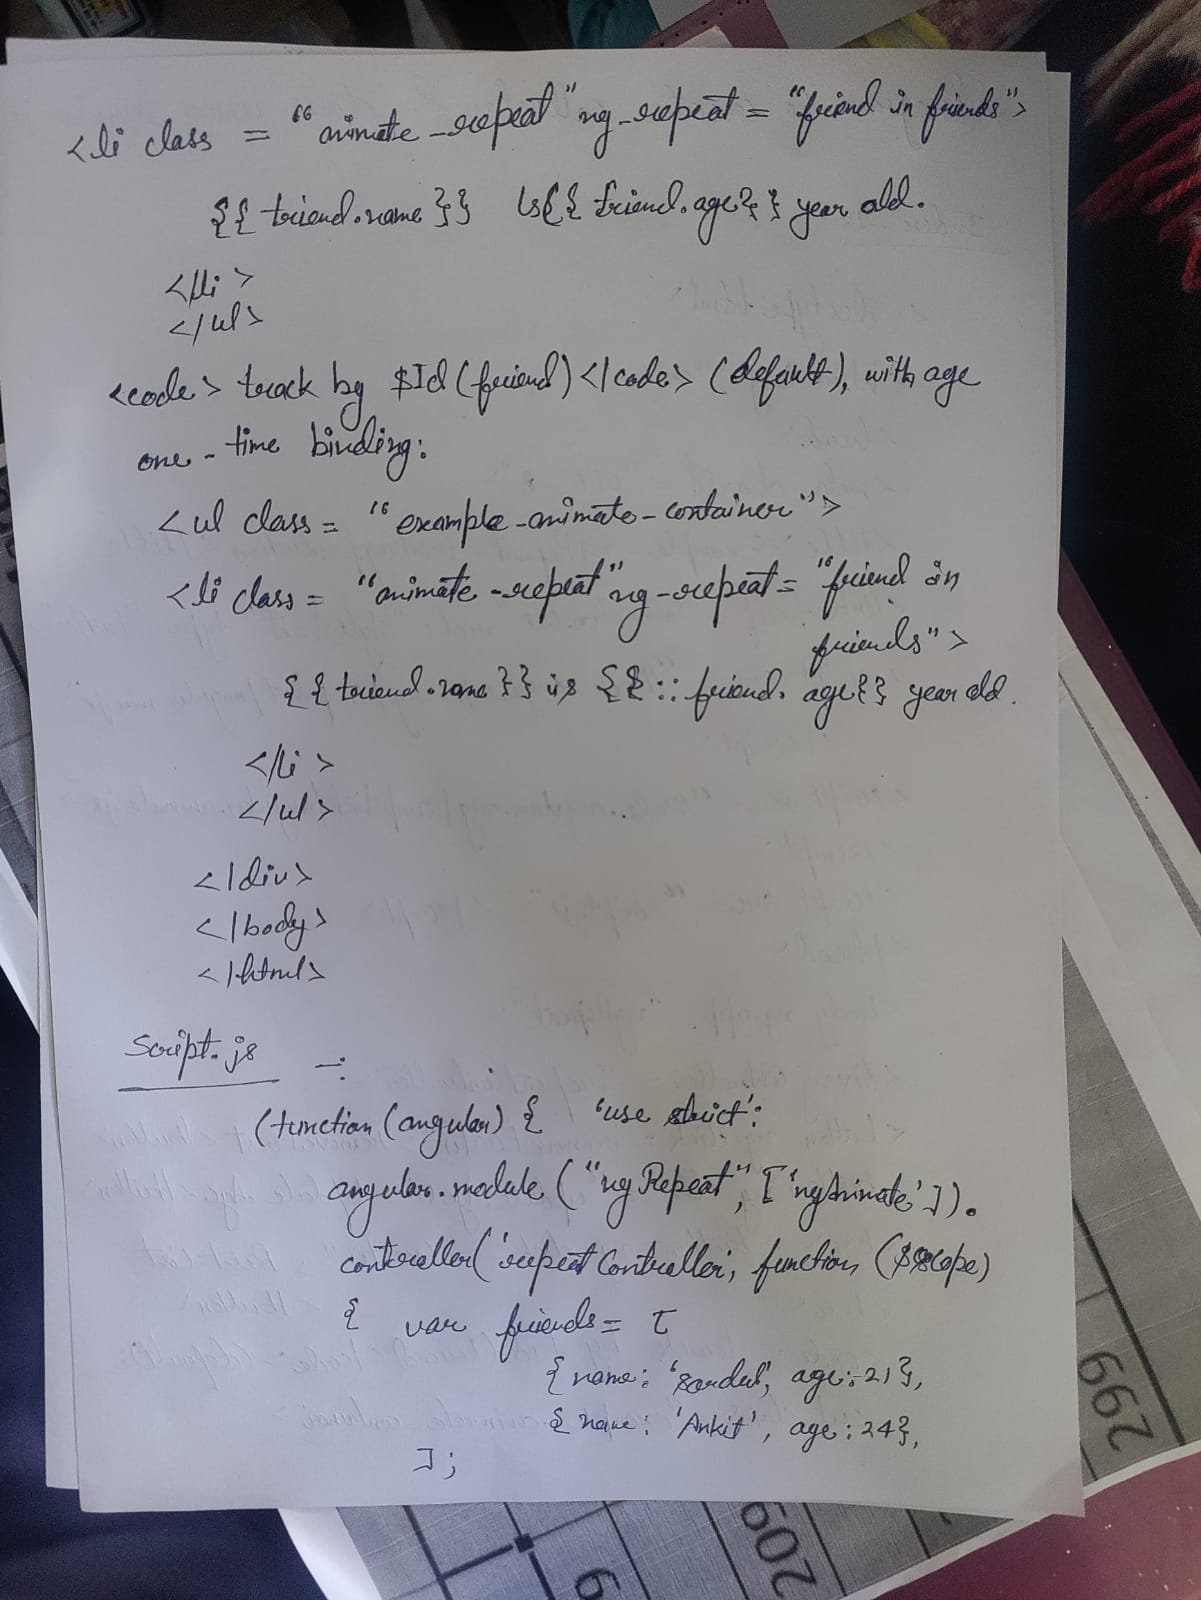 <li class = "animate-repeat" ng-repeat = "friend in friends">
{{ friend.name }} is {{ friend.age }} year old.
</li>
</ul>
<code> track by $Id(friend) </code> (default), with age
one-time binding:
<ul class = "example-animate-container">
<li class = "animate-repeat" ng-repeat = "friend in
friends">
{{ friend.name }} is {{ :: friend.age }} year old.
</li>
</ul>
</div>
</body>
</html>
Script.js -:
(function (angular) { 'use strict':
angular.module ("ngRepeat", ['ngAnimate']).
controller('repeatController', function ($scope)
{ var friends = [
{ name: 'Sardul', age: 21},
{ name: 'Ankit', age: 24},
];
299
209